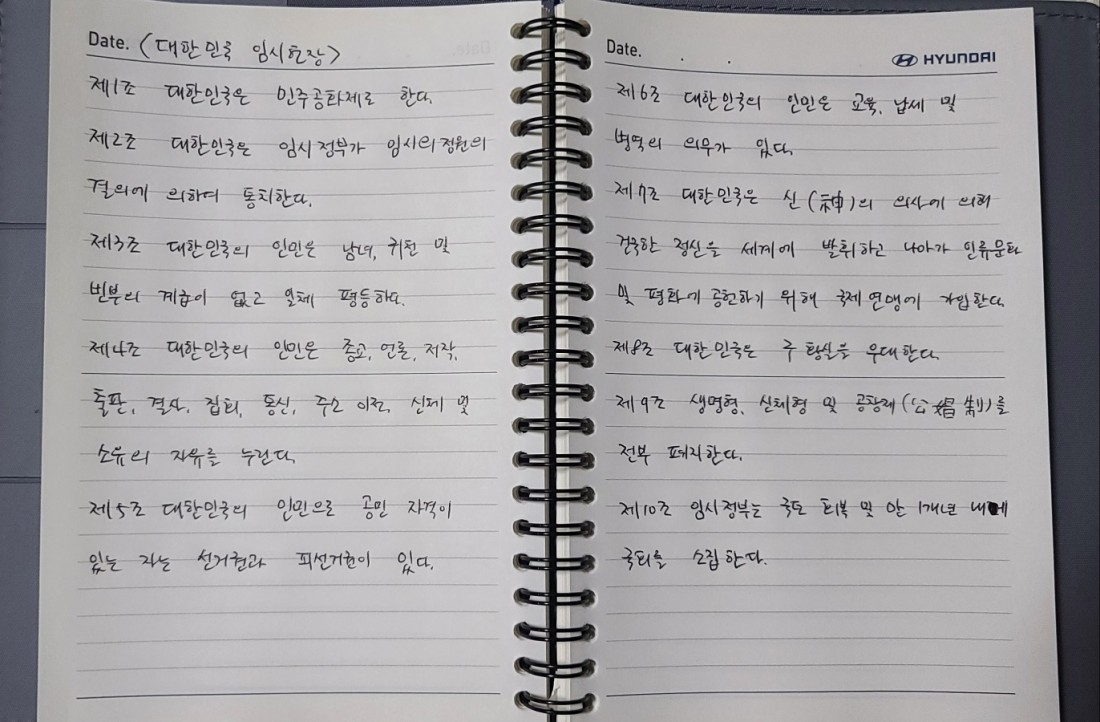 Date. <대한민국 임시헌장>
제1조 대한민국은 민주공화제로 한다.
제2조 대한민국은 임시정부가 임시의정원의
결의에 의하여 통치한다.
제3조 대한민국의 인민은 남녀, 귀천 및
빈부의 계급이 없고 일체 평등하다.
제4조 대한민국의 인민은 종교, 언론, 저작,
출판, 결사, 집회, 통신, 주소 이전, 신체 및
소유의 자유를 누린다.
제5조 대한민국의 인민으로 공민 자격이
있는 자는 선거권과 피선거권이 있다.
Date. . .
HYUNDAI
제6조 대한민국의 인민은 교육, 납세 및
병역의 의무가 있다.
제7조 대한민국은 신(神)의 의사에 의해
건국한 정신을 세계에 발휘하고 나아가 인류문화
및 평화에 공헌하기 위해 국제연맹에 가입한다.
제8조 대한민국은 구 황실을 우대한다.
제9조 생명형, 신체형 및 공창제(公娼制)를
전부 폐지한다.
제10조 임시정부는 국토 회복 후 만 1개년 내에
국회를 소집한다.